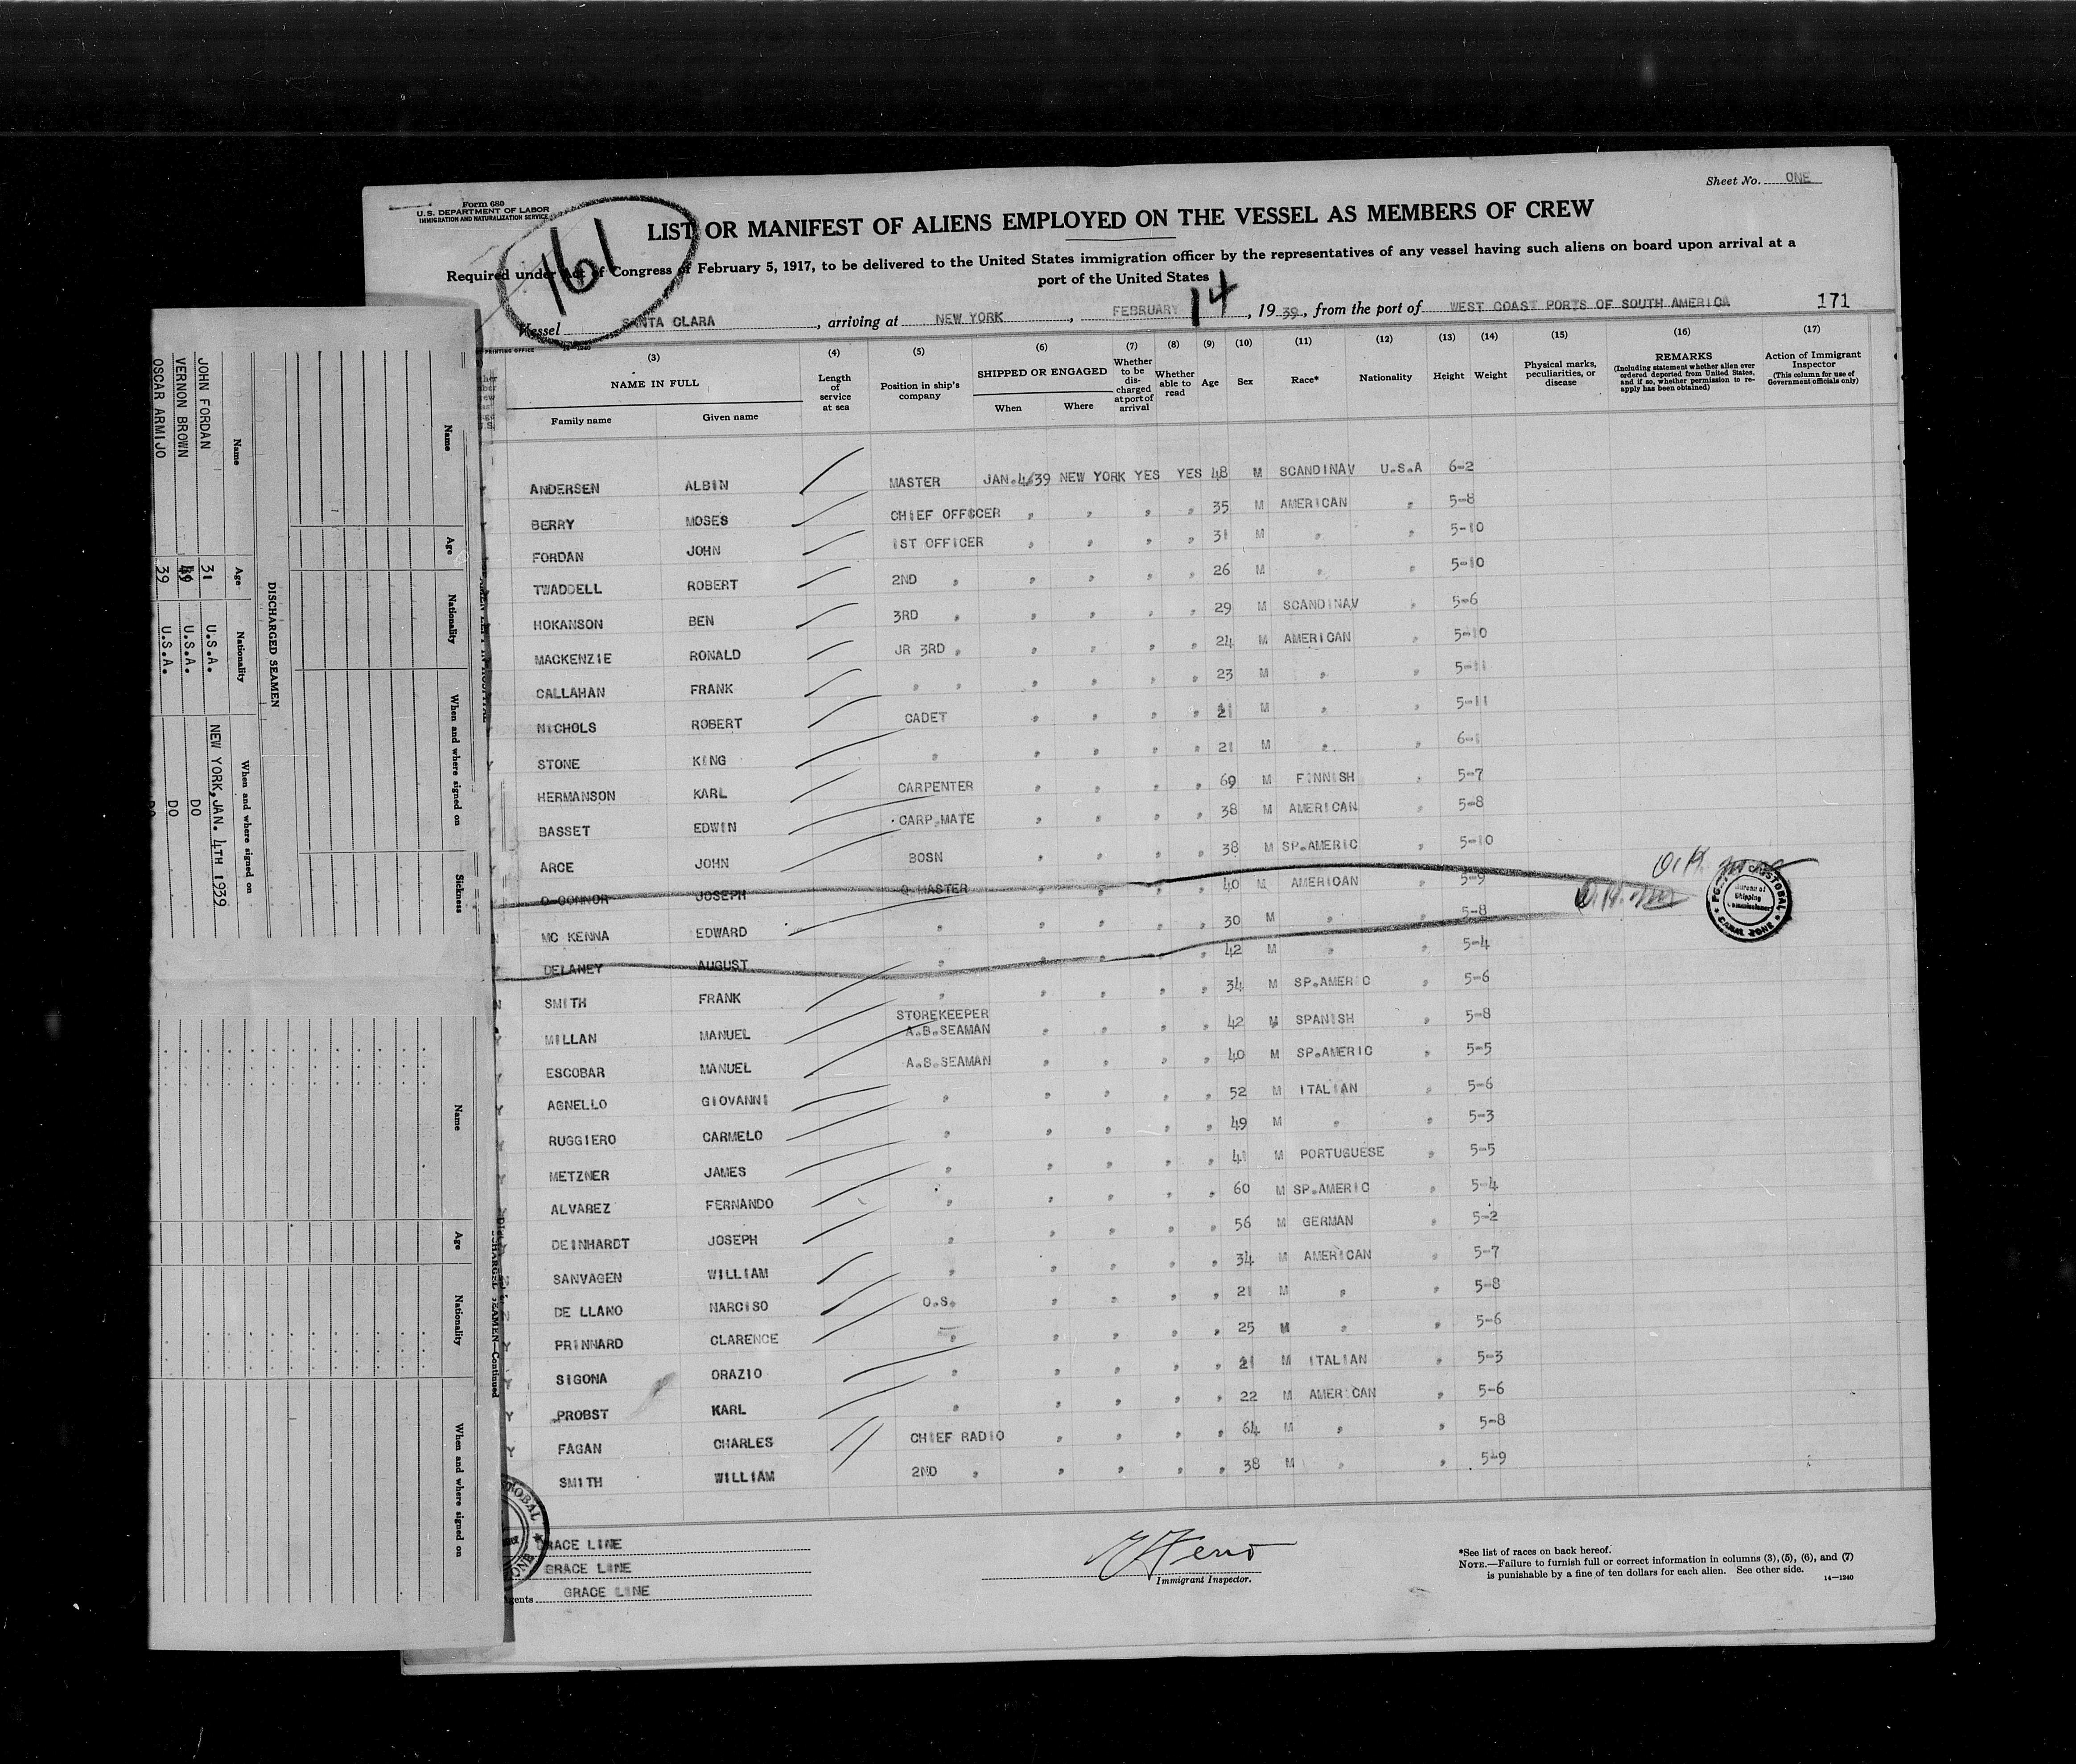 Sheet No. ONE
Form 680
U.S. DEPARTMENT OF LABOR
IMMIGRATION AND NATURALIZATION SERVICE
161
LIST OR MANIFEST OF ALIENS EMPLOYED ON THE VESSEL AS MEMBERS OF CREW
Required under Act of Congress of February 5, 1917, to be delivered to the United States immigration officer by the representatives of any vessel having such aliens on board upon arrival at a
port of the United States
Vessel SANTA CLARA, arriving at NEW YORK, FEBRUARY 14, 1939, from the port of WEST COAST PORTS OF SOUTH AMERICA 171
PRINTING OFFICE
(3) NAME IN FULL Family name Given name
(4) Length of service at sea
(5) Position in ship's company
(6) SHIPPED OR ENGAGED When Where
(7) Whether to be discharged at port of arrival
(8) Whether able to read
(9) Age
(10) Sex
(11) Race*
(12) Nationality
(13) Height
(14) Weight
(15) Physical marks, peculiarities, or disease
(16) REMARKS (Including statement whether alien ever ordered deported from United States, and if so, whether permission to reapply has been obtained)
(17) Action of Immigrant Inspector (This column for use of Government officials only)
ANDERSEN ALBIN MASTER JAN.4/39 NEW YORK YES YES 48 M SCANDINAV U.S.A 6-2
BERRY MOSES CHIEF OFFICER " " " " 35 M AMERICAN " 5-8
FORDAN JOHN 1ST OFFICER " " " " 31 M " " 5-10
TWADDELL ROBERT 2ND " " " " " 26 M " " 5-10
HOKANSON BEN 3RD " " " " " 29 M SCANDINAV " 5-6
MACKENZIE RONALD JR 3RD " " " " " 24 M AMERICAN " 5-10
CALLAHAN FRANK " " " " " " 23 M " " 5-11
NICHOLS ROBERT CADET " " " " 21 M " " 5-11
STONE KING " " " " " 21 M " " 6-1
HERMANSON KARL CARPENTER " " " " 69 M FINNISH " 5-7
BASSET EDWIN CARP.MATE " " " " 38 M AMERICAN " 5-8
ARCE JOHN BOSN " " " " 38 M SP.AMERIC " 5-10
O CONNOR JOSEPH Q.MASTER " " " " 40 M AMERICAN " 5-9
MC KENNA EDWARD " " " " " 30 M " " 5-8
DELANEY AUGUST " " " " " 42 M " " 5-4
SMITH FRANK " " " " " 34 M SP.AMERIC " 5-6
MILLAN MANUEL STOREKEEPER A.B.SEAMAN " " " " 42 M SPANISH " 5-8
ESCOBAR MANUEL A.B.SEAMAN " " " " 40 M SP.AMERIC " 5-5
AGNELLO GIOVANNI " " " " " 52 M ITALIAN " 5-6
RUGGIERO CARMELO " " " " " 49 M " " 5-3
METZNER JAMES " " " " " 41 M PORTUGUESE " 5-5
ALVAREZ FERNANDO " " " " " 60 M SP.AMERIC " 5-4
DEINHARDT JOSEPH " " " " " 56 M GERMAN " 5-2
SANVAGEN WILLIAM " " " " " 34 M AMERICAN " 5-7
DE LLANO NARCISO O.S. " " " " 21 M " " 5-8
PRINNARD CLARENCE " " " " " 25 M " " 5-6
SIGONA ORAZIO " " " " " 21 M ITALIAN " 5-3
PROBST KARL " " " " " 22 M AMERICAN " 5-6
FAGAN CHARLES CHIEF RADIO " " " " 64 M " " 5-8
SMITH WILLIAM 2ND " " " " " 38 M " " 5-9
CRISTOBAL
Bureau of
Shipping
Commissioner
CANAL ZONE
GRACE LINE
GRACE LINE
Agents GRACE LINE
Immigrant Inspector.
*See list of races on back hereof.
NOTE.—Failure to furnish full or correct information in columns (3), (5), (6), and (7)
is punishable by a fine of ten dollars for each alien. See other side.
14—1240
Name Age Nationality When and where signed on Sickness
DISCHARGED SEAMEN
Name Age Nationality When and where signed on
JOHN FORDAN 31 U.S.A. NEW YORK, JAN. 4TH 1939
VERNON BROWN 49 U.S.A. DO
OSCAR ARMIJO 39 U.S.A. DO
DISCHARGED SEAMEN—Continued
Name Age Nationality When and where signed on